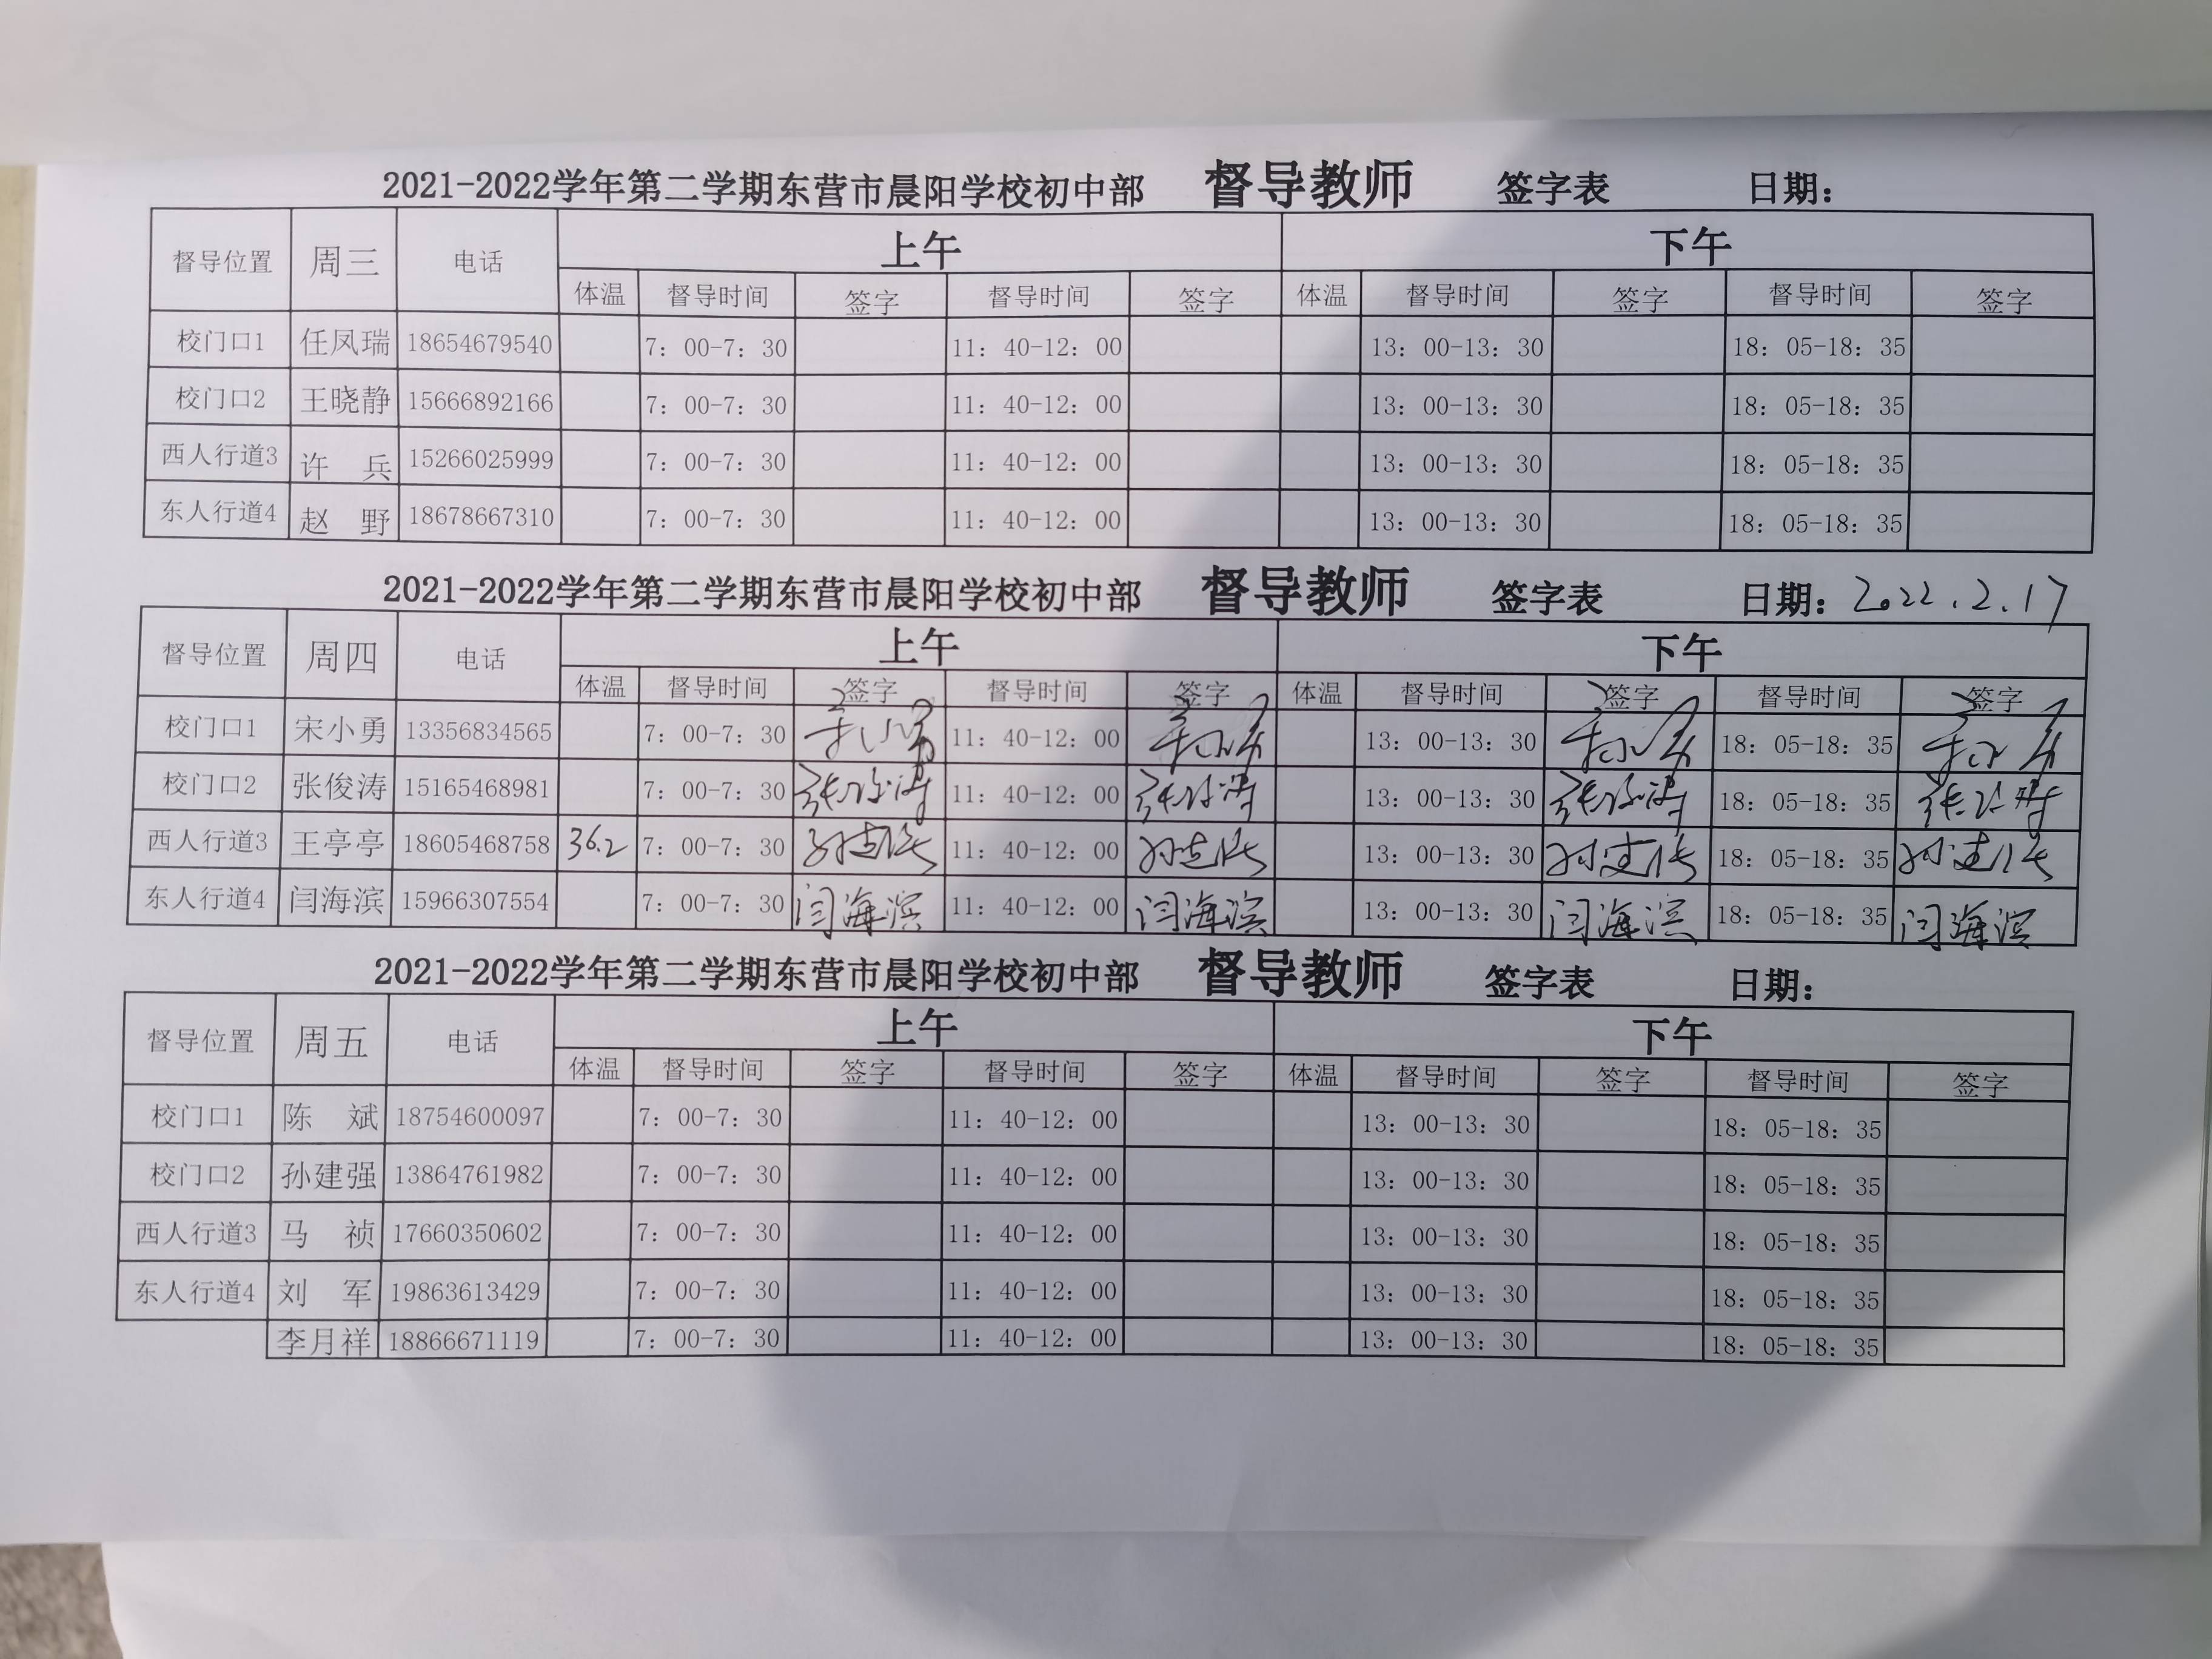 2021-2022学年第二学期东营市晨阳学校初中部 督导教师 签字表 日期:
督导位置 周三 电话 上午 下午
体温 督导时间 签字 督导时间 签字 体温 督导时间 签字 督导时间 签字
校门口1 任凤瑞 18654679540 7: 00-7: 30 11: 40-12: 00 13: 00-13: 30 18: 05-18: 35
校门口2 王晓静 15666892166 7: 00-7: 30 11: 40-12: 00 13: 00-13: 30 18: 05-18: 35
西人行道3 许 兵 15266025999 7: 00-7: 30 11: 40-12: 00 13: 00-13: 30 18: 05-18: 35
东人行道4 赵 野 18678667310 7: 00-7: 30 11: 40-12: 00 13: 00-13: 30 18: 05-18: 35
2021-2022学年第二学期东营市晨阳学校初中部 督导教师 签字表 日期: 2022.2.17
督导位置 周四 电话 上午 下午
体温 督导时间 签字 督导时间 签字 体温 督导时间 签字 督导时间 签字
校门口1 宋小勇 13356834565 7: 00-7: 30 宋小勇 11: 40-12: 00 宋小勇 13: 00-13: 30 宋小勇 18: 05-18: 35 宋小勇
校门口2 张俊涛 15165468981 7: 00-7: 30 张俊涛 11: 40-12: 00 张俊涛 13: 00-13: 30 张俊涛 18: 05-18: 35 张俊涛
西人行道3 王亭亭 18605468758 36.2 7: 00-7: 30 孙建强 11: 40-12: 00 孙建强 13: 00-13: 30 孙建强 18: 05-18: 35 孙建强
东人行道4 闫海滨 15966307554 7: 00-7: 30 闫海滨 11: 40-12: 00 闫海滨 13: 00-13: 30 闫海滨 18: 05-18: 35 闫海滨
2021-2022学年第二学期东营市晨阳学校初中部 督导教师 签字表 日期:
督导位置 周五 电话 上午 下午
体温 督导时间 签字 督导时间 签字 体温 督导时间 签字 督导时间 签字
校门口1 陈 斌 18754600097 7: 00-7: 30 11: 40-12: 00 13: 00-13: 30 18: 05-18: 35
校门口2 孙建强 13864761982 7: 00-7: 30 11: 40-12: 00 13: 00-13: 30 18: 05-18: 35
西人行道3 马 祯 17660350602 7: 00-7: 30 11: 40-12: 00 13: 00-13: 30 18: 05-18: 35
东人行道4 刘 军 19863613429 7: 00-7: 30 11: 40-12: 00 13: 00-13: 30 18: 05-18: 35
李月祥 18866671119 7: 00-7: 30 11: 40-12: 00 13: 00-13: 30 18: 05-18: 35